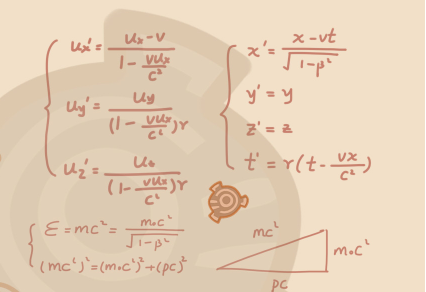 ux' = (ux - v) / (1 - vux/c²)
uy' = uy / ((1 - vux/c²)r)
uz' = uz / ((1 - vux/c²)r)
x' = (x - vt) / √(1-β²)
y' = y
z' = z
t' = r(t - vx/c²)
ε = mc² = m₀c² / √(1-β²)
(mc²)² = (m₀c²)² + (pc)²
mc²
m₀c²
pc